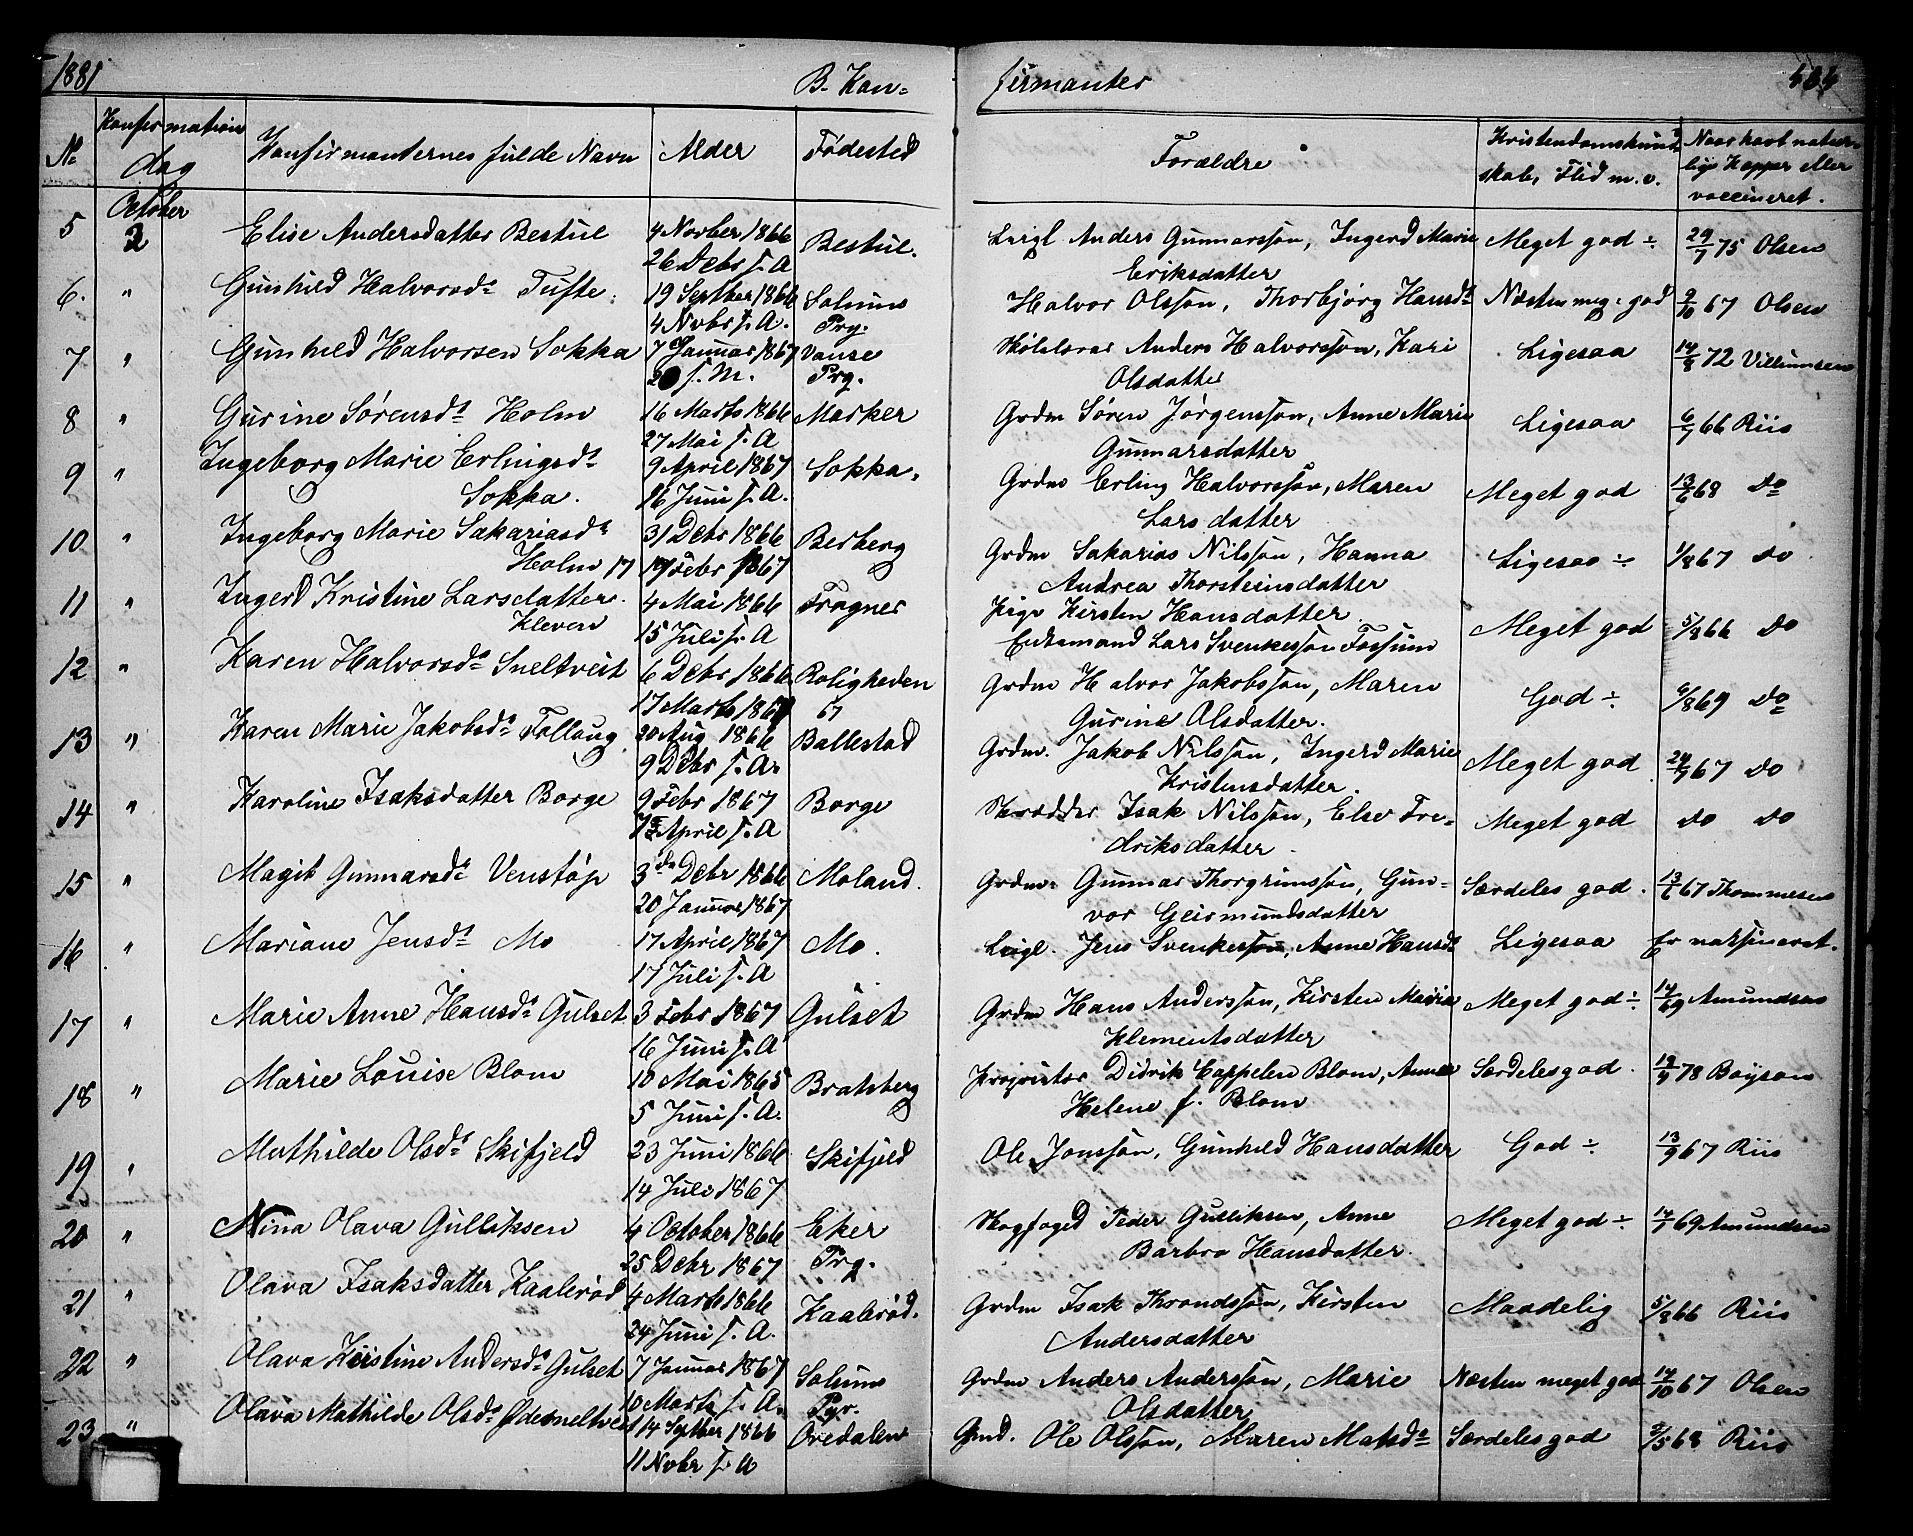 1881 B. Kon= firmanter
No Konfirmation dag Konfirmanternes fulde Navn Alder Fødested Forældre Kristendomskund- Naar havt natur-
skab, Flid m.v. lige Kopper eller
vaccineret.
October
5 2 Elise Andersdatter Bestul 4 Novber 1866 Bestul. Leigl Anders Gunnarssøn, Ingerd Marie Meget god ÷ 29/7 75 Olsen
26 Debr s. A Eriksdatter
6. " Gunhild Halvorsd. Tufte. 19 Septber 1866 Solums Halvor Olssøn, Thorbjørg Hansd. Næsten meg: god 9/10 67 Olsen
4 Nvbr s. A. Prg.
7 " Gunhild Halvorsen Sokka 7 Januar 1867 Vanse Anders Halvorssøn, Kari Ligesaa 14/8 72 Villumsen
20 s. M. Prg. Olsdatter
8 " Gurine Sørensd. Holm 16 Marts 1866 Marker Grdm Søren Jørgenssøn, Anne Marie Ligesaa 6/7 66 Riis
27 Mai s. A Gunnarsdatter
9 " Ingeborg Marie Erlingsd. 9 April 1867 Sokka. Grdm Erling Halvorssøn, Maren Meget god 13/6 68 Do
Sokka. 16 Juni s. A. Larsdatter
10 " Ingeborg Marie Sakariasd. 31 Debr 1866 Berberg Grdm Sakarias Nilssøn, Hanna Ligesaa ÷ 1/8 67 Do
Holm 17 17 Febr 1867 Andrea Thorsteinsdatter
11 " Ingerd Kristine Larsdatter. 4 Mai 1866 Frogner Pige Kirsten Hansdatter. Meget god 5/8 66 Do
Kleven 15 Juli s. A Enkemand Lars Svenkessøn Fossum
12 " Karen Halvorsd. Sneltveit 6 Debr 1866 Roligheden Grdm Halvor Jakobssøn, Maren God ÷ 6/8 69 Do
17 Marts 1867 67 Gurine Olsdatter.
13 " Karen Marie Jakobsd. Follaug 20 Aug 1866 Ballestad Grdm. Jakob Nilssøn, Ingerd Marie Meget god 24/7 67 Do
9 Debr s. A. Kristensdatter.
14 " Karoline Isaksdatter Borge 9 Febr 1867 Borge Skrædder Isak Nilssøn, Else Fre- Meget god Do Do
April s. A driksdatter.
15 " Magit Gunnarsd. Venstøp 3 Debr 1866 Moland. Grdm. Gunnar Thorgrimssøn, Gun- Særdeles god. 13/6 67 Thommesen
20 Januar 1867 vor Geirmundsdatter
16 " Mariane Jensd. Mo 17 April 1867 Mo. Leigl. Jens Svenkessøn, Anne Hansd. Ligesaa Er vaksineret.
17 Juli s. A
17 " Marie Anne Hansd. Gulset 3 Febr 1867 Gulset Grdm Hans Anderssøn, Kirsten Maria Meget god ÷ 14/7 69 Amundsen
16 Juni s. A Klementsdatter
18 " Marie Louise Blom 10 Mai 1865 Bratsberg Proprietær Didrik Cappelen Blom, Anne Særdeles god. 19/9 78 Boyson
5 Juni s. A. Helene f. Blom
19 " Mathilde Olsd. Skifjeld 23 Juni 1866 Skifjeld Ole Jonssøn, Gunhild Hansdatter God ÷ 13/9 67 Riis
14 Juli 1867
20 " Nina Olava Gulliksen 4 October 1866 Eker Skogfoged Peder Gulliksen, Anne Meget god ÷ 14/7 69 Amundsen
25 Debr 1867 Prg. Barbro Hansdatter.
21 " Olava Isaksdatter Kaalerød 4 Marts 1866 Kaalerød. Grdm Isak Throndssøn, Kirsten Maadelig 5/8 66 Riis
24 Juni s. A. Andersdatter
22 " Olava Kirstine Andersd. Gulset 7 Januar 1867 Solums Grdm Anders Anderssøn, Marie Næsten meget god 14/10 67 Olsen
10 Marts s. A. Pgr. Olsdatter
23 " Olava Mathilde Olsd. Ødesneltveit 14 Sptber 1866 Ovedalen Gmd. Ole Olssøn, Maren Matsd. Særdeles god 2/5 68 Riis
11 Nvbr s. A